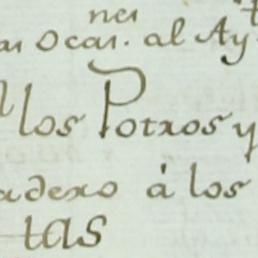 nes
Ocas. al Ay
los Potros y
adero á los
tas